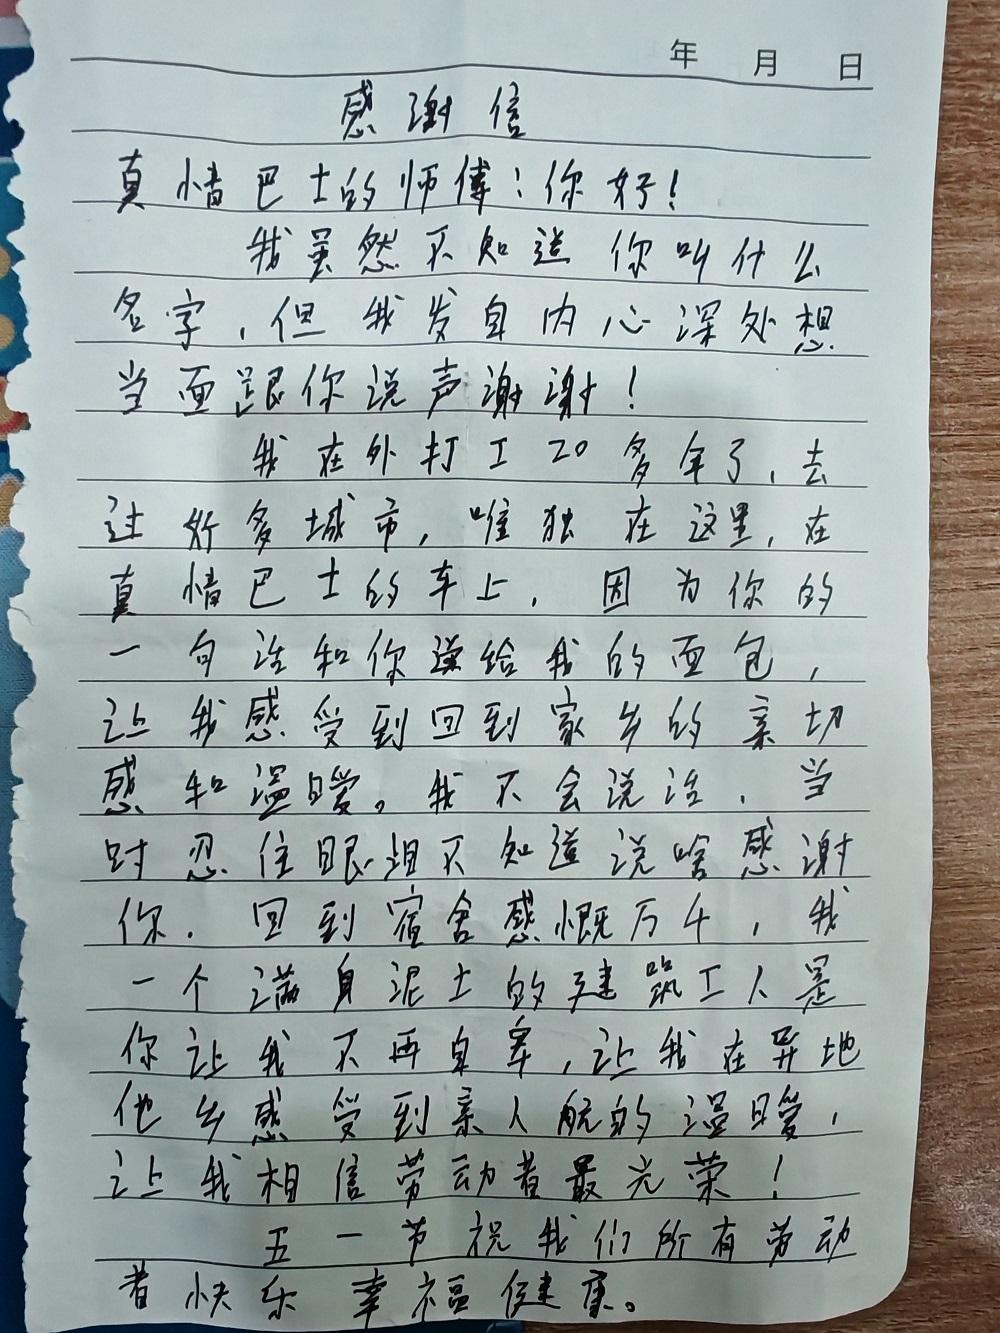 年 月 日
感谢信
真情巴士的师傅：你好！
我虽然不知道你叫什么
名字，但我发自内心深处想
当面跟你说声谢谢！
我在外打工20多年了，去
过好多城市，唯独在这里，在
真情巴士的车上，因为你的
一句话和你递给我的面包，
让我感受到回到家乡的亲切
感和温暖。我不会说话，当
时忍住眼泪不知道说啥感谢
你．回到宿舍感慨万千，我
一个满身泥土的建筑工人是
你让我不再自卑，让我在异地
他乡感受到亲人般的温暖，
让我相信劳动者最光荣！
五一节祝我们所有劳动
者快乐幸福健康。